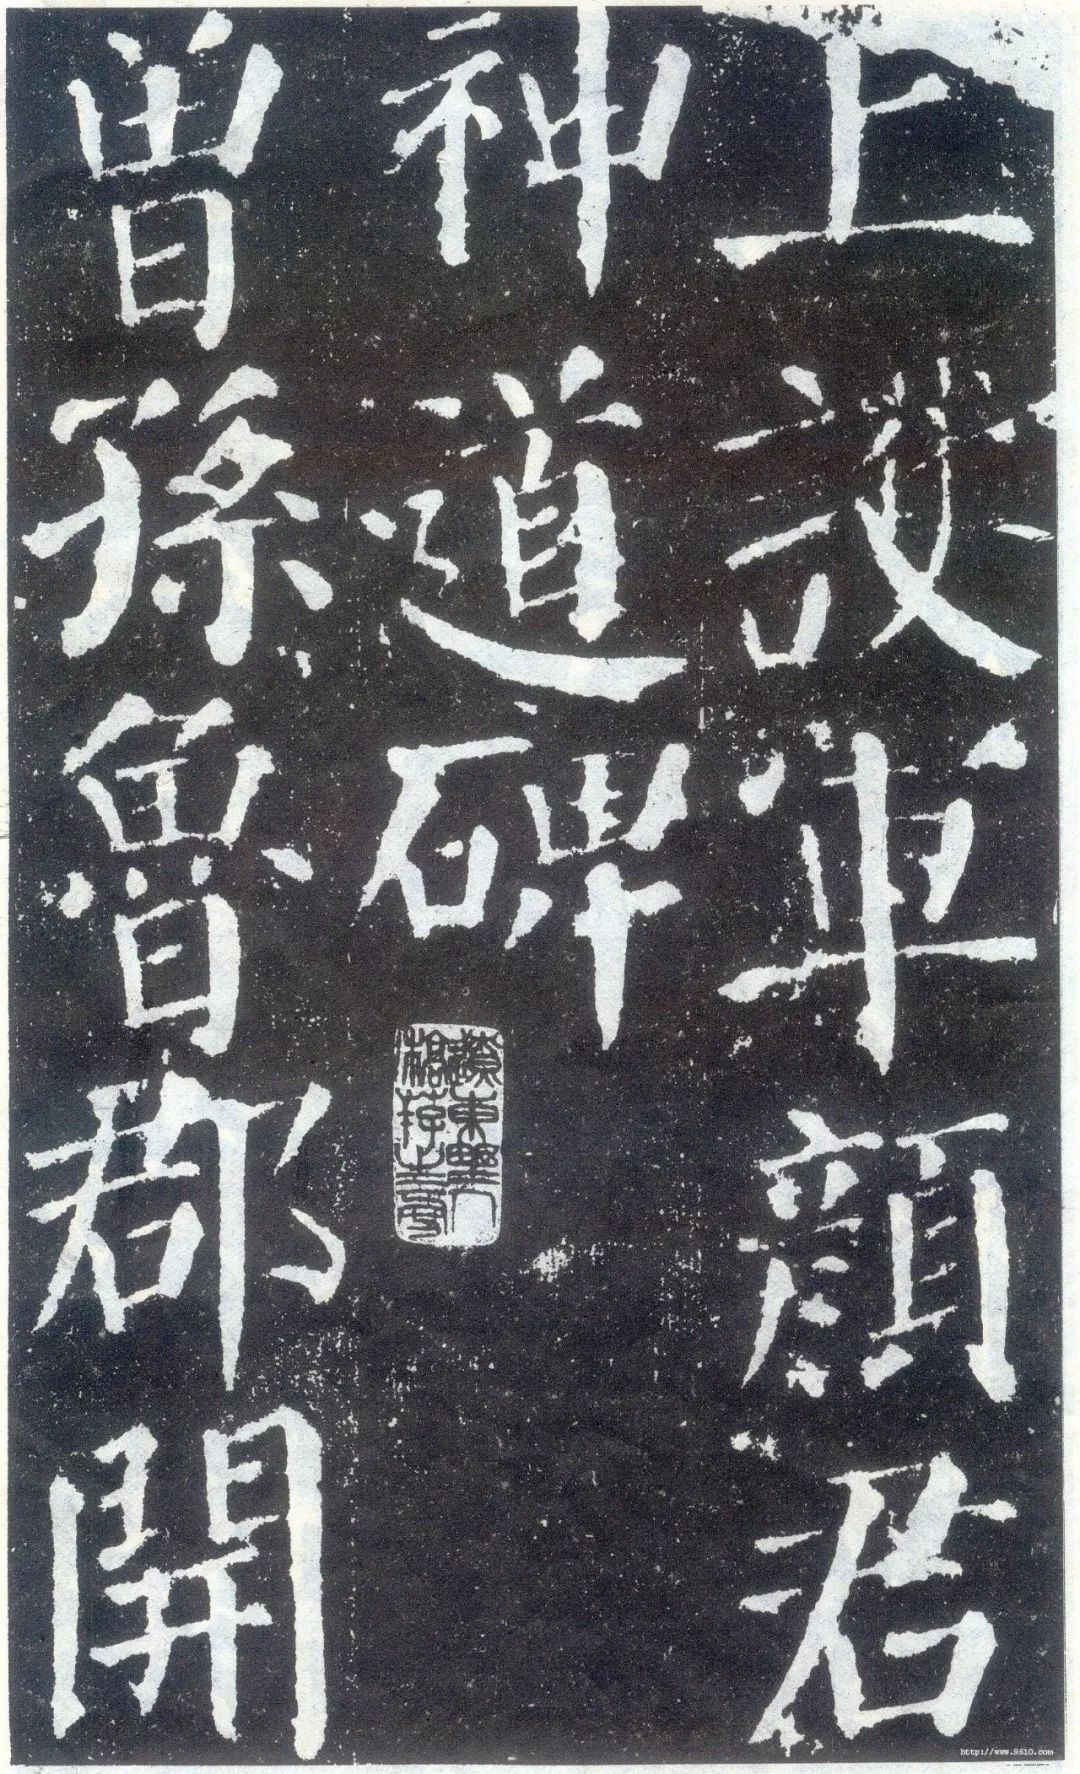 上護軍顏君
神道碑
曾孫魯郡開
http://www.9610.com